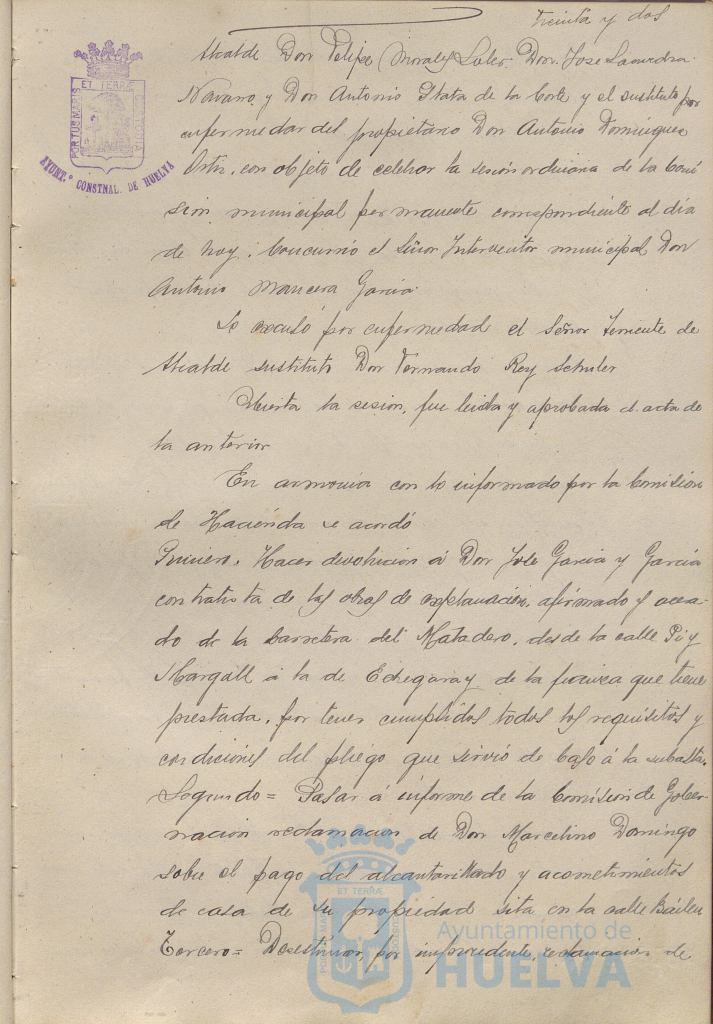 treinta y dos
Alcalde Don Felipe Morales Soler. Don José Saavedra
Navarro y Don Antonio Mata de la Corte y el sustituto por
enfermedad del propietario Don Antonio Dominguez
Ortiz, con objeto de celebrar la sesión ordinaria de la Comi
sión municipal permanente correspondiente al dia
de hoy. Concurrió el Señor Interventor municipal Don
Antonio Mancera Garcia.
Se excusó por enfermedad el Señor Teniente de
Alcalde sustituto Don Fernando Rey Schuler
Abierta la sesion, fue leida y aprobada el acta de
la anterior
En armonia con lo informado por la Comision
de Hacienda se acordó
Primero. Hacer devolucion á Don José Garcia y García
contratista de las obras de explanación, afirmado y acera-
do de la Carretera del Matadero, desde la calle Pi y
Margall á la de Echegaray de la fianza que tiene
prestada, por tener cumplidos todos los requisitos y
condiciones del pliego que sirvió de base á la subasta.
Segundo = Pasar á informe de la Comision de Gober-
nación reclamacion de Don Marcelino Domingo
sobre el pago del alcantarillado y acometimientos
de casa de su propiedad sita en la calle Bailen
Tercero = Desestimar, por improcedente, reclamacion de
PORTUS MARIS ET TERRÆ CUSTODIA
AYUNT.º CONSTNAL. DE HUELVA
PORTUS MARIS ET TERRÆ CUSTODIA
Ayuntamiento de
HUELVA